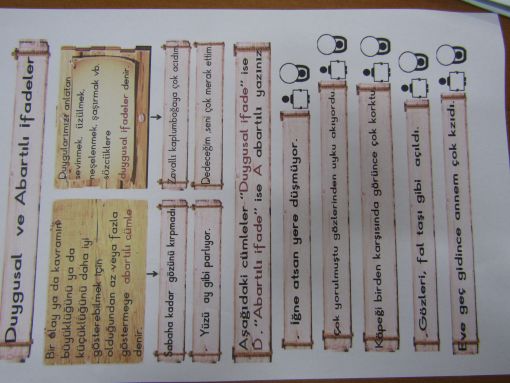 Duygusal ve Abartılı ifadeler
Bir olay ya da kavramın
büyüklüğünü ya da
küçüklüğünü daha iyi
gösterebilmek için
olduğundan az veya fazla
göstermeye abartılı cümle
denir.
Duygularımızı anlatan
sevinmek, üzülmek,
neşelenmek, şaşırmak vb.
sözcüklere
duygusal ifadeler denir.
Sabaha kadar gözünü kırpmadı.
Zavallı kaplumbağaya çok acıdım.
Yüzü ay gibi parlıyor.
Dedeceğim seni çok merak ettim.
Aşağıdaki cümleler "Duygusal ifade" ise
D "Abartılı ifade" ise A abartılı yazınız
iğne atsan yere düşmüyor.
Çok yorulmuştu gözlerinden uyku akıyordu.
Köpeği birden karşısında görünce çok korktu
Gözleri, fal taşı gibi açıldı.
Eve geç gidince annem çok kzıdı.